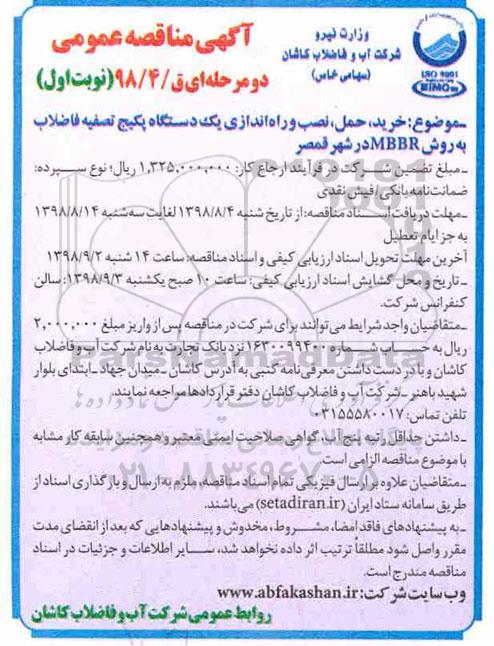 وزارت نیرو
شرکت آب و فاضلاب کاشان
(سهامی خاص)
ISO 9001
آگهی مناقصه عمومی
دو مرحله‌ای ق/۹۸/۴ (نوبت اول)
-موضوع: خرید، حمل، نصب و راه‌اندازی یک دستگاه پکیج تصفیه فاضلاب
به روش MBBR در شهر قمصر
- مبلغ تضمین شرکت در فرآیند ارجاع کار: ۱,۳۲۵,۰۰۰,۰۰۰ ریال؛ نوع سپرده:
ضمانت‌نامه بانکی / فیش نقدی
-مهلت دریافت اسناد مناقصه: از تاریخ شنبه ۱۳۹۸/۸/۴ لغایت سه‌شنبه ۱۳۹۸/۸/۱۴
به جز ایام تعطیل
آخرین مهلت تحویل اسناد ارزیابی کیفی و اسناد مناقصه: ساعت ۱۴ شنبه ۱۳۹۸/۹/۲
- تاریخ و محل گشایش اسناد ارزیابی کیفی: ساعت ۱۰ صبح یکشنبه ۱۳۹۸/۹/۳: سالن
کنفرانس شرکت.
-متقاضیان واجد شرایط می‌توانند برای شرکت در مناقصه پس از واریز مبلغ ۲,۰۰۰,۰۰۰
ریال به حساب شماره ۱۶۳۰۰۹۹۴۰۰ نزد بانک تجارت به نام شرکت آب و فاضلاب
کاشان و با در دست داشتن معرفی‌نامه کتبی به آدرس کاشان - میدان جهاد - ابتدای بلوار
شهید باهنر - شرکت آب و فاضلاب کاشان دفتر قراردادها مراجعه نمایند.
تلفن تماس: ۰۳۱۵۵۵۸۰۰۱۷
- داشتن حداقل رتبه پنج آب، گواهی صلاحیت ایمنی معتبر و همچنین سابقه کار مشابه
با موضوع مناقصه الزامی است.
-متقاضیان علاوه بر ارسال فیزیکی تمام اسناد مناقصه، ملزم به ارسال و بارگذاری اسناد از
طریق سامانه ستاد ایران (setadiran.ir) می‌باشند.
-به پیشنهادهای فاقد امضا، مشروط، مخدوش و پیشنهادهایی که بعد از انقضای مدت
مقرر واصل شود مطلقاً ترتیب اثر داده نخواهد شد، سایر اطلاعات و جزئیات در اسناد
مناقصه مندرج است.
وب سایت شرکت: www.abfakashan.ir
روابط عمومی شرکت آب و فاضلاب کاشان
ParsNamadData
۰۲۱-۸۸۳۴۹۶۷۰